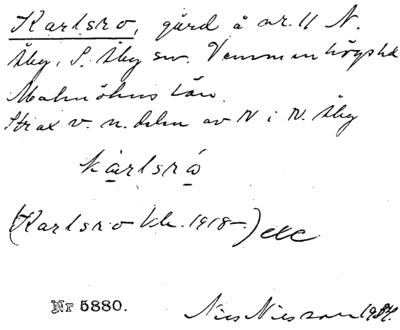 Karlsro, gård å nr. 11 N.
Åby, S. Åby sn. Vemmenhögs hd
Malmöhus län.
Strax v. n. delen av N i N. Åby
kạrlsrọ
(Karlsro kbr. 1918–) etc
Nr 5880. Nils Nilsson 1934.